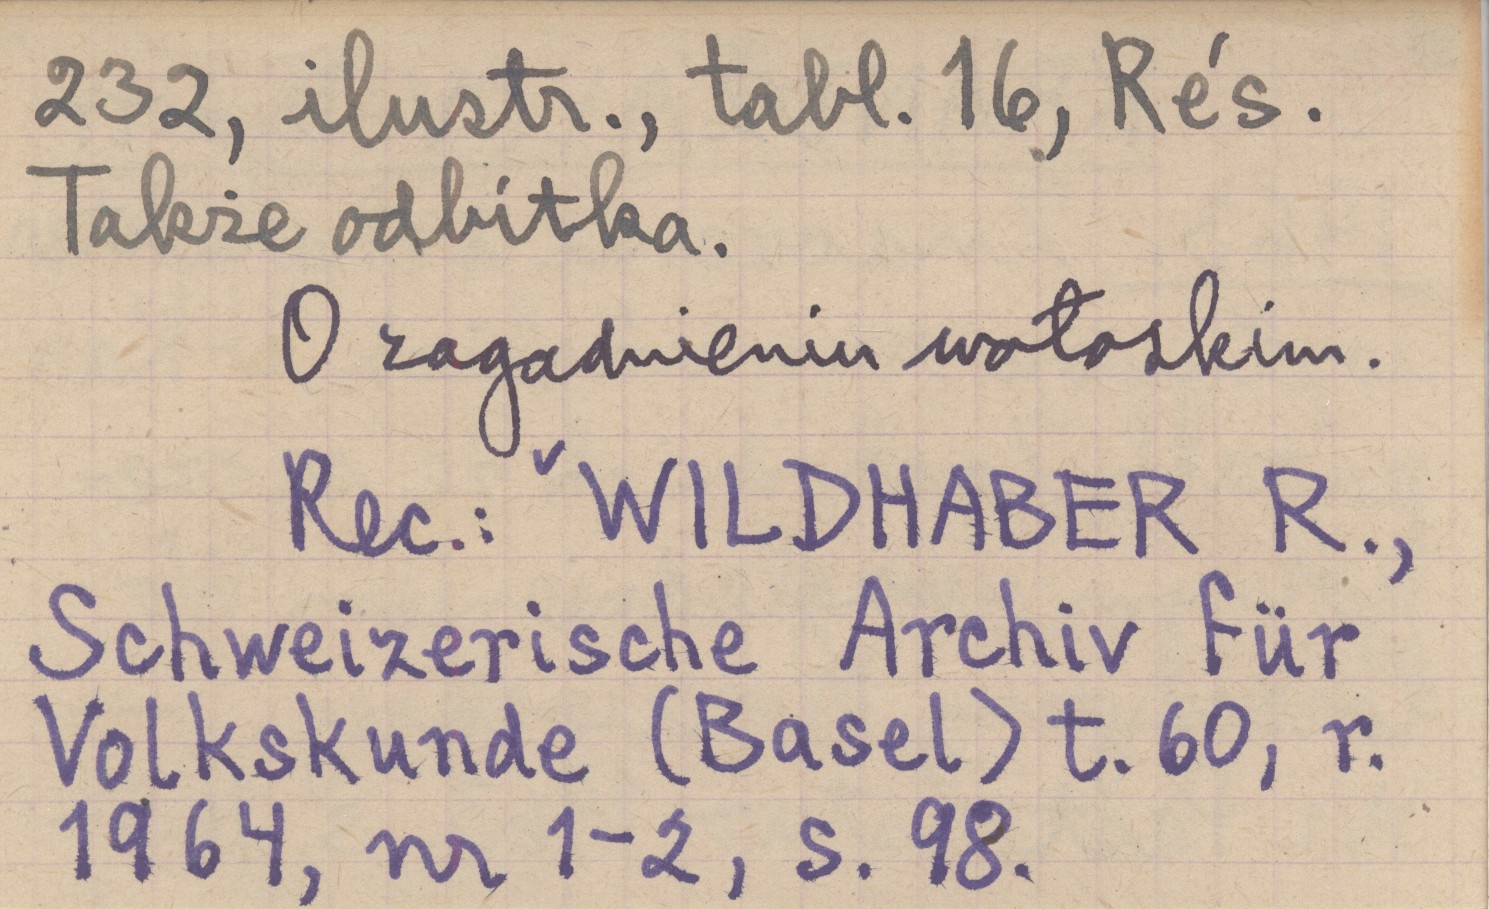 232, ilustr., tabl. 16, Rés.
Także odbitka.
O zagadnieniu wołoskim.
Rec.: ˇWILDHABER R.,
Schweizerische Archiv für
Volkskunde (Basel) t. 60, r.
1964, nr 1-2, s. 98.